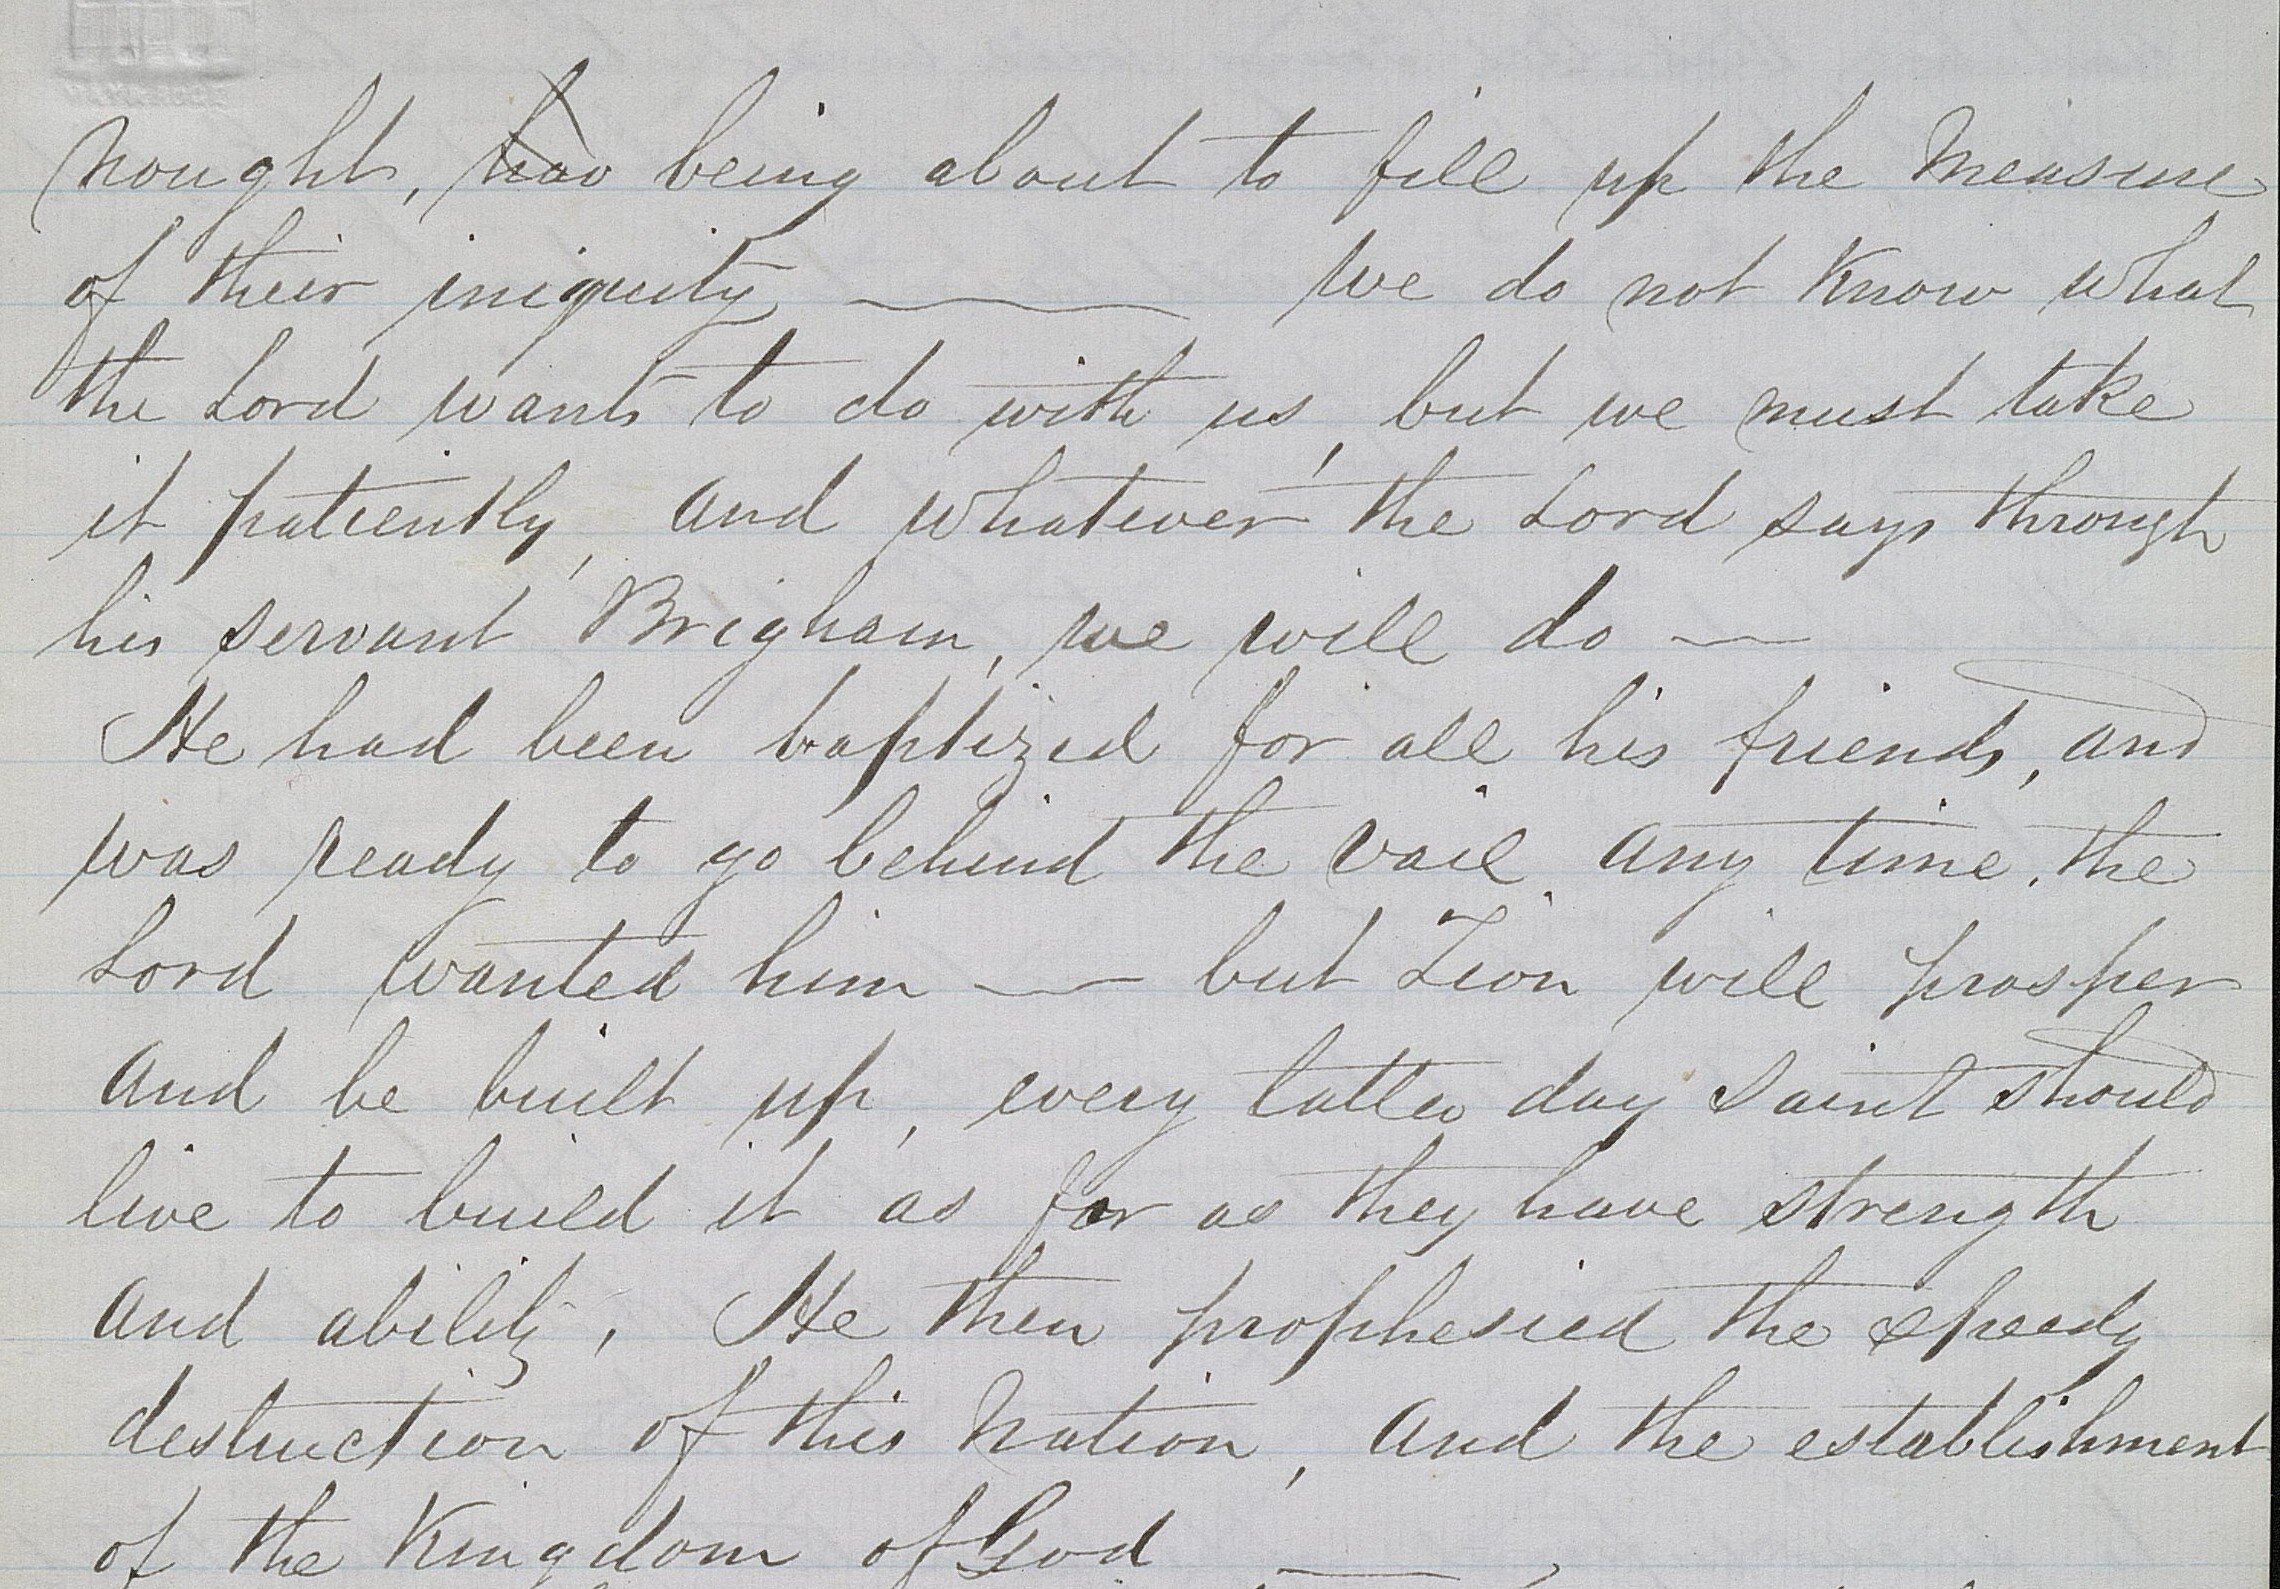 nought, being about to fill up the measure
of their iniquity —— We do not Know what
the Lord wants to do with us, but we must take
it patiently, and whatever the Lord says through
his servant Brigham, we will do —
He had been baptized for all his friends, and
was ready to go behind the vail any time, the
Lord wanted him — but Zion will prosper
and be built up, every latter day Saint should
live to build it as far as they have strength
and ability. He then prophesied the speedy
destruction of this Nation, and the establishment
of the Kingdom of God ——